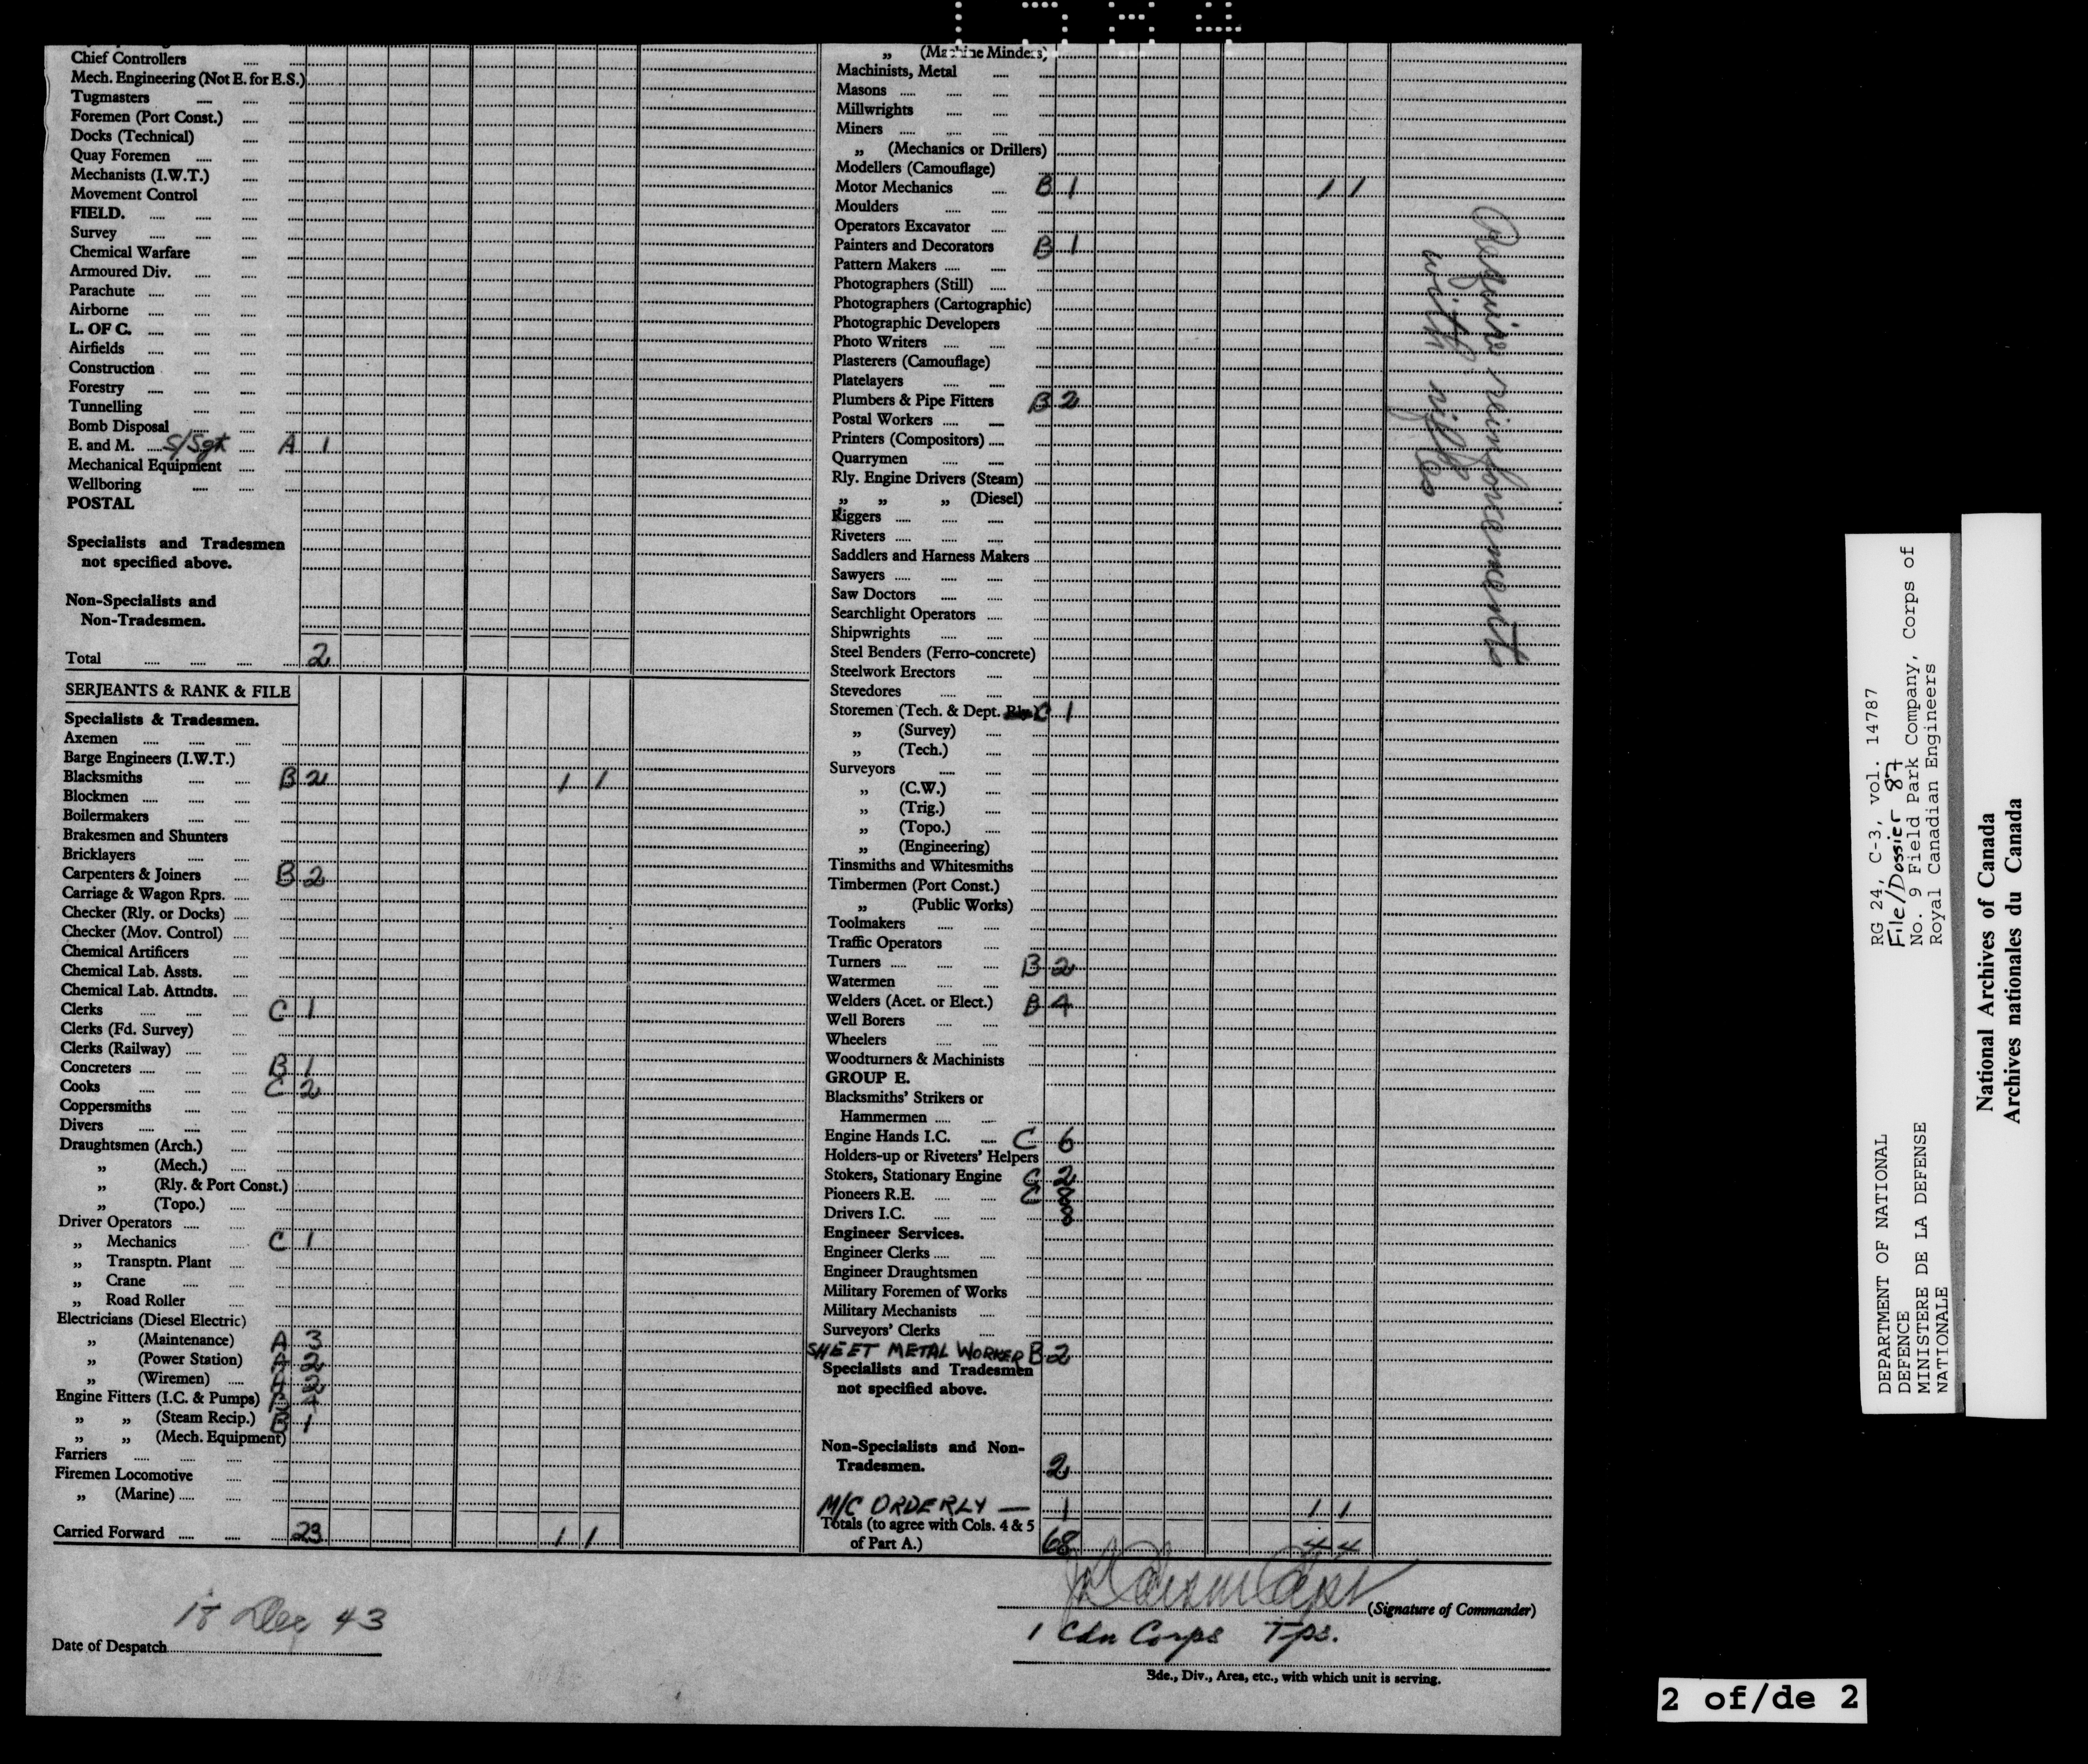 Chief Controllers
Mech. Engineering (Not E. for E.S.)
Tugmasters
Foremen (Port Const.)
Docks (Technical)
Quay Foremen
Mechanists (I.W.T.)
Movement Control
FIELD.
Survey
Chemical Warfare
Armoured Div.
Parachute
Airborne
L. OF C.
Airfields
Construction
Forestry
Tunnelling
Bomb Disposal
E. and M. S/Sgt A 1
Mechanical Equipment
Wellboring
POSTAL
Specialists and Tradesmen
not specified above.
Non-Specialists and
Non-Tradesmen.
Total 2
SERJEANTS & RANK & FILE
Specialists & Tradesmen.
Axemen
Barge Engineers (I.W.T.)
Blacksmiths B 2 1 1
Blockmen
Boilermakers
Brakesmen and Shunters
Bricklayers
Carpenters & Joiners B 2
Carriage & Wagon Rprs.
Checker (Rly. or Docks)
Checker (Mov. Control)
Chemical Artificers
Chemical Lab. Assts.
Chemical Lab. Attndts.
Clerks C 1
Clerks (Fd. Survey)
Clerks (Railway)
Concreters B 1
Cooks C 2
Coppersmiths
Divers
Draughtsmen (Arch.)
„ (Mech.)
„ (Rly. & Port Const.)
„ (Topo.)
Driver Operators
„ Mechanics C 1
„ Transptn. Plant
„ Crane
„ Road Roller
Electricians (Diesel Electric)
„ (Maintenance) A 3
„ (Power Station) A 2
„ (Wiremen) A 2
Engine Fitters (I.C. & Pumps) B
„ „ (Steam Recip.) B 1
„ „ (Mech. Equipment)
Farriers
Firemen Locomotive
„ (Marine)
Carried Forward 23 1 1
„ (Machine Minders)
Machinists, Metal
Masons
Millwrights
Miners
„ (Mechanics or Drillers)
Modellers (Camouflage)
Motor Mechanics B 1 1 1
Moulders
Operators Excavator
Painters and Decorators B 1
Pattern Makers
Photographers (Still)
Photographers (Cartographic)
Photographic Developers
Photo Writers
Plasterers (Camouflage)
Platelayers
Plumbers & Pipe Fitters B 2
Postal Workers
Printers (Compositors)
Quarrymen
Rly. Engine Drivers (Steam)
„ „ „ (Diesel)
Riggers
Riveters
Saddlers and Harness Makers
Sawyers
Saw Doctors
Searchlight Operators
Shipwrights
Steel Benders (Ferro-concrete)
Steelwork Erectors
Stevedores
Storemen (Tech. & Dept. C 1
„ (Survey)
„ (Tech.)
Surveyors
„ (C.W.)
„ (Trig.)
„ (Topo.)
„ (Engineering)
Tinsmiths and Whitesmiths
Timbermen (Port Const.)
„ (Public Works)
Toolmakers
Traffic Operators
Turners B 2
Watermen
Welders (Acet. or Elect.) B 4
Well Borers
Wheelers
Woodturners & Machinists
GROUP E.
Blacksmiths' Strikers or
Hammermen
Engine Hands I.C. C 6
Holders-up or Riveters' Helpers
Stokers, Stationary Engine C 2
Pioneers R.E. C 8
Drivers I.C. 8
Engineer Services.
Engineer Clerks
Engineer Draughtsmen
Military Foremen of Works
Military Mechanists
Surveyors' Clerks
SHEET METAL WORKER B 2
Specialists and Tradesmen
not specified above.
Non-Specialists and Non-
Tradesmen. 2
M/C ORDERLY — 1 1 1
Totals (to agree with Cols. 4 & 5
of Part A.) 68 4 4
Require reinforcements
with rifles
Date of Despatch 18 Dec 43
Capt (Signature of Commander)
1 Cdn Corps Tps.
Bde., Div., Area, etc., with which unit is serving.
DEPARTMENT OF NATIONAL
DEFENCE
MINISTERE DE LA DEFENSE
NATIONALE
RG 24, C-3, vol. 14787
File/Dossier 87
No. 9 Field Park Company, Corps of
Royal Canadian Engineers
National Archives of Canada
Archives nationales du Canada
2 of/de 2